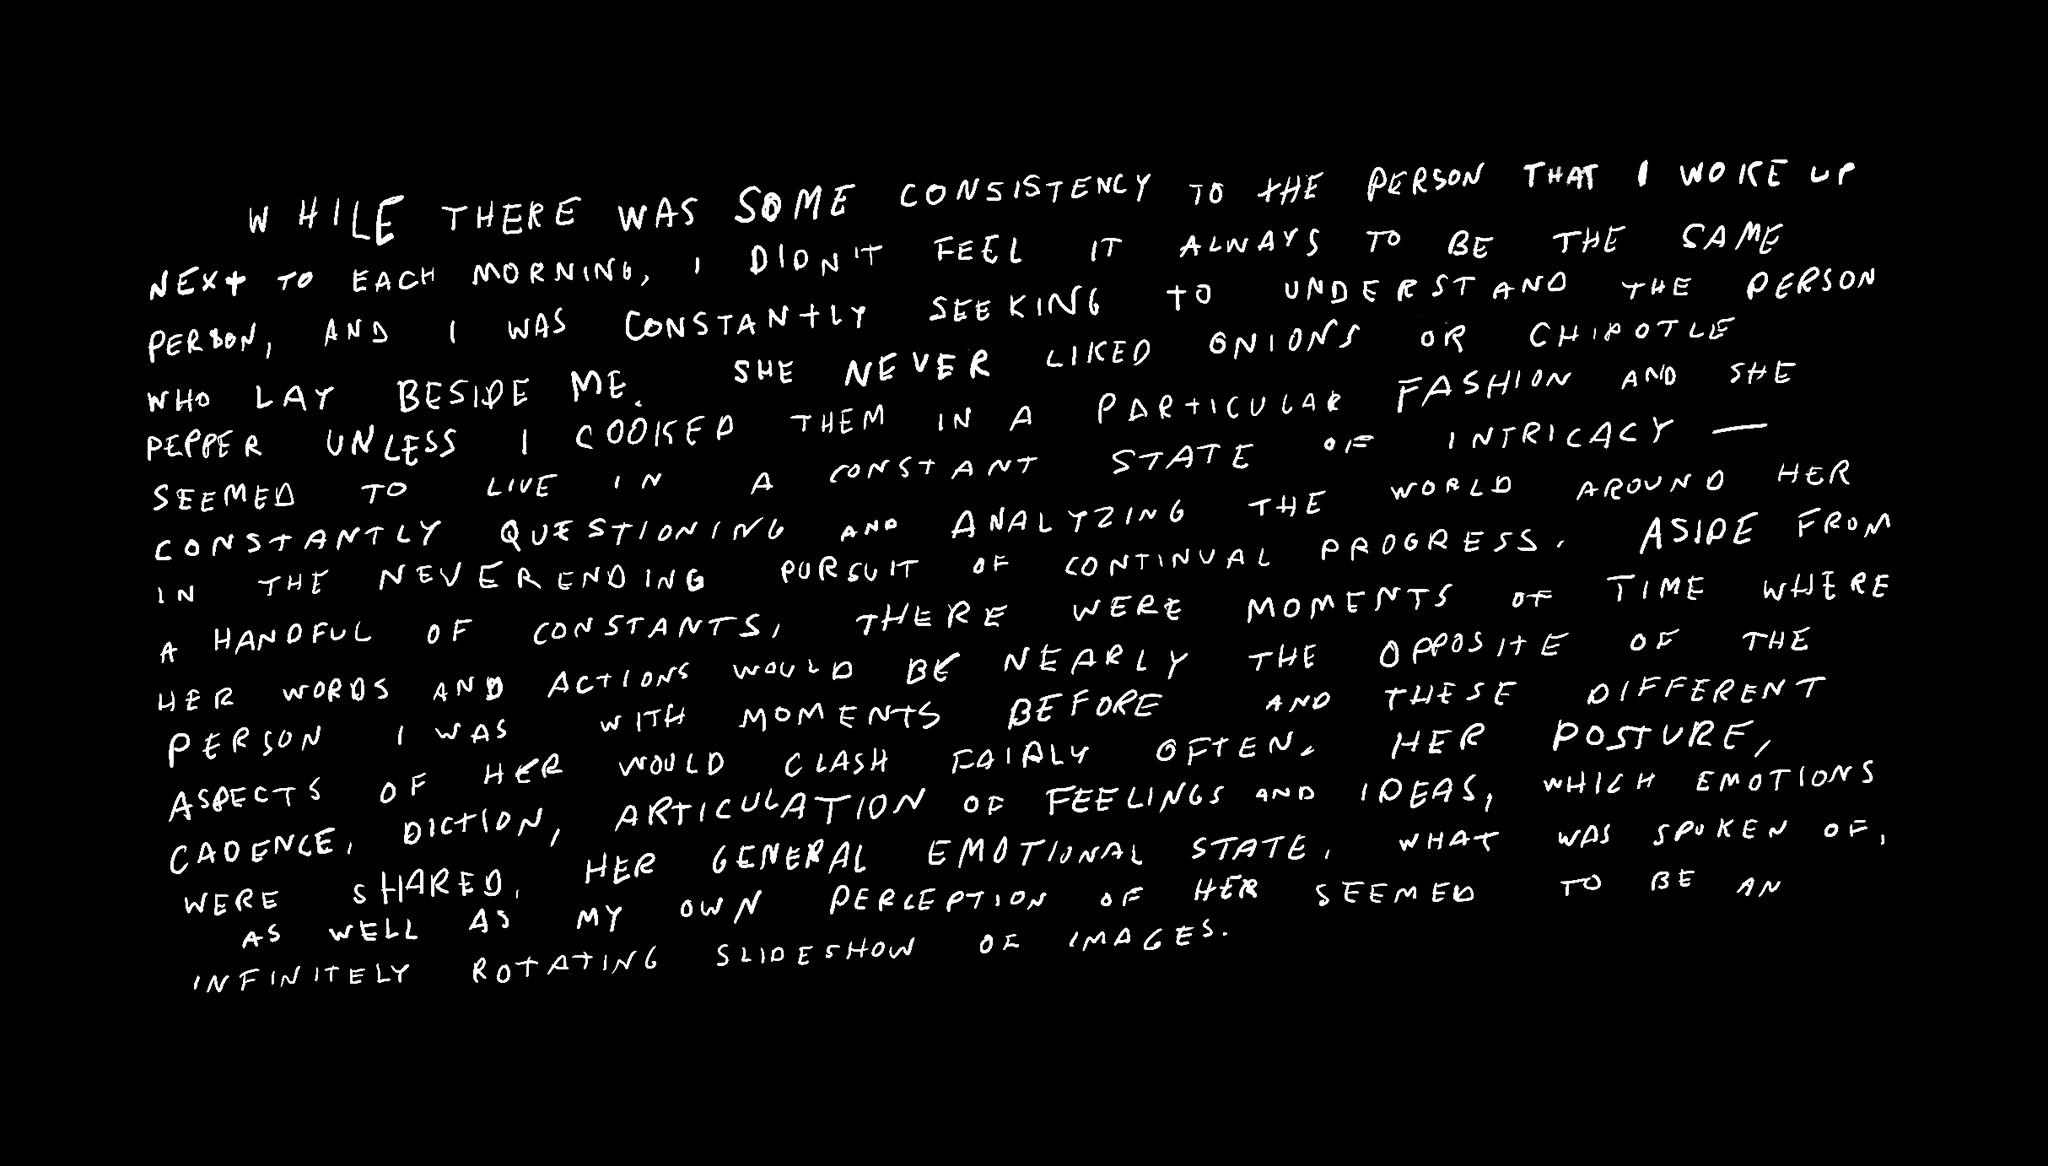 WHILE THERE WAS SOME CONSISTENCY TO THE PERSON THAT I WOKE UP
NEXT TO EACH MORNING, I DIDN'T FEEL IT ALWAYS TO BE THE SAME
PERSON, AND I WAS CONSTANTLY SEEKING TO UNDERSTAND THE PERSON
WHO LAY BESIDE ME. SHE NEVER LIKED ONIONS OR CHIPOTLE
PEPPER UNLESS I COOKED THEM IN A PARTICULAR FASHION AND SHE
SEEMED TO LIVE IN A CONSTANT STATE OF INTRICACY —
CONSTANTLY QUESTIONING AND ANALYZING THE WORLD AROUND HER
IN THE NEVERENDING PURSUIT OF CONTINUAL PROGRESS. ASIDE FROM
A HANDFUL OF CONSTANTS, THERE WERE MOMENTS OF TIME WHERE
HER WORDS AND ACTIONS WOULD BE NEARLY THE OPPOSITE OF THE
PERSON I WAS WITH MOMENTS BEFORE AND THESE DIFFERENT
ASPECTS OF HER WOULD CLASH FAIRLY OFTEN. HER POSTURE,
CADENCE, DICTION, ARTICULATION OF FEELINGS AND IDEAS, WHICH EMOTIONS
WERE SHARED, HER GENERAL EMOTIONAL STATE, WHAT WAS SPOKEN OF,
AS WELL AS MY OWN PERCEPTION OF HER SEEMED TO BE AN
INFINITELY ROTATING SLIDESHOW OF IMAGES.